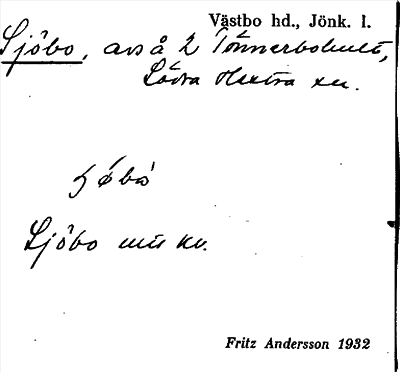 Västbo hd., Jönk. l.
Sjöbo, avs å 2 Tönnerbohult,
Södra Hestra sn.
Sjöbo
Fritz Andersson 1932